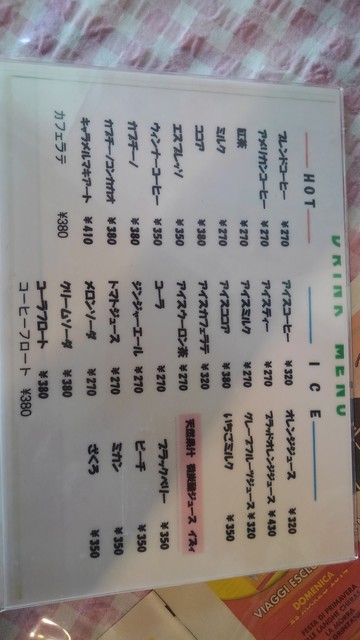 DRINK MENU
HOT
ブレンドコーヒー ¥270
アメリカンコーヒー ¥270
紅茶 ¥270
ミルク ¥270
ココア ¥380
エスプレッソ ¥350
ウィンナーコーヒー ¥350
カプチーノ ¥380
カプチーノコンカカオ ¥380
キャラメルマキアート ¥410
カフェラテ ¥380
ICE
アイスコーヒー ¥320
アイスティー ¥270
アイスミルク ¥270
アイスココア ¥380
アイスカフェラテ ¥320
アイスウーロン茶 ¥270
コーラ ¥270
ジンジャーエール ¥270
トマトジュース ¥270
メロンソーダ ¥270
クリームソーダ ¥380
コーラフロート ¥380
コーヒーフロート ¥380
オレンジジュース ¥320
ブラッドオレンジジュース ¥430
グレープフルーツジュース ¥320
いちごミルク ¥350
天然果汁 微炭酸ジュース
ブラックベリー ¥350
ピーチ ¥350
ミカン ¥350
ざくろ ¥350
VIAGGI ESCL
DOMENICA
FESTA DI PRIMAVERA